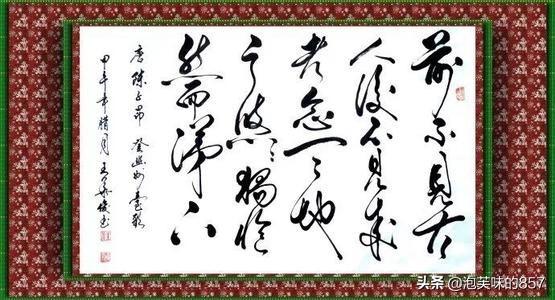 前不見古
人後不見来
者念天地
之悠々獨愴
然而涕下
唐陳子昂 登幽州臺歌
甲午年腊月 王
头条 @泡芙味的857